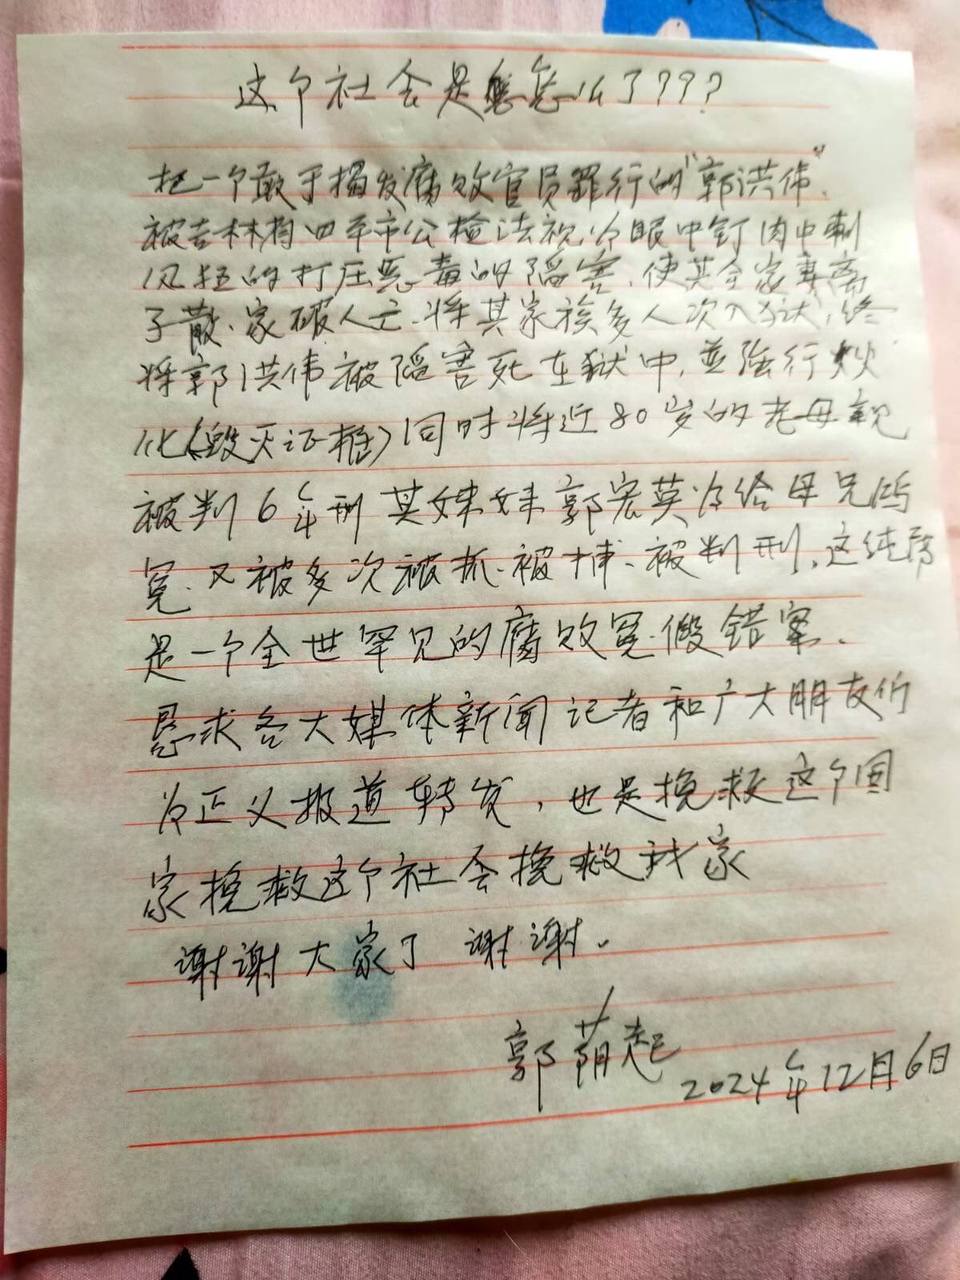 这个社会是怎么了???
把一个敢于揭发腐败官员罪行的"郭洪伟"、
被吉林省四平市公检法视为眼中钉肉中刺
的打压恶毒的陷害,使其全家妻离
子散、家破人亡、将其家族多人次入狱,终
将郭洪伟被陷害死在狱中,並强行火
化(毁灭证据)同时将近80岁的老母亲
被判6年刑其妹妹郭宏英为给母兄鸣
冤、又被多次被抓、被捕、被判刑,这纯属
是一个全世罕见的腐败冤、假错案、
恳求各大媒体新闻记者和广大朋友们
为正义报道转发,也是挽救这个国
家挽救这个社会挽救我家
谢谢大家了 谢谢。
郭荫起
2024年12月6日